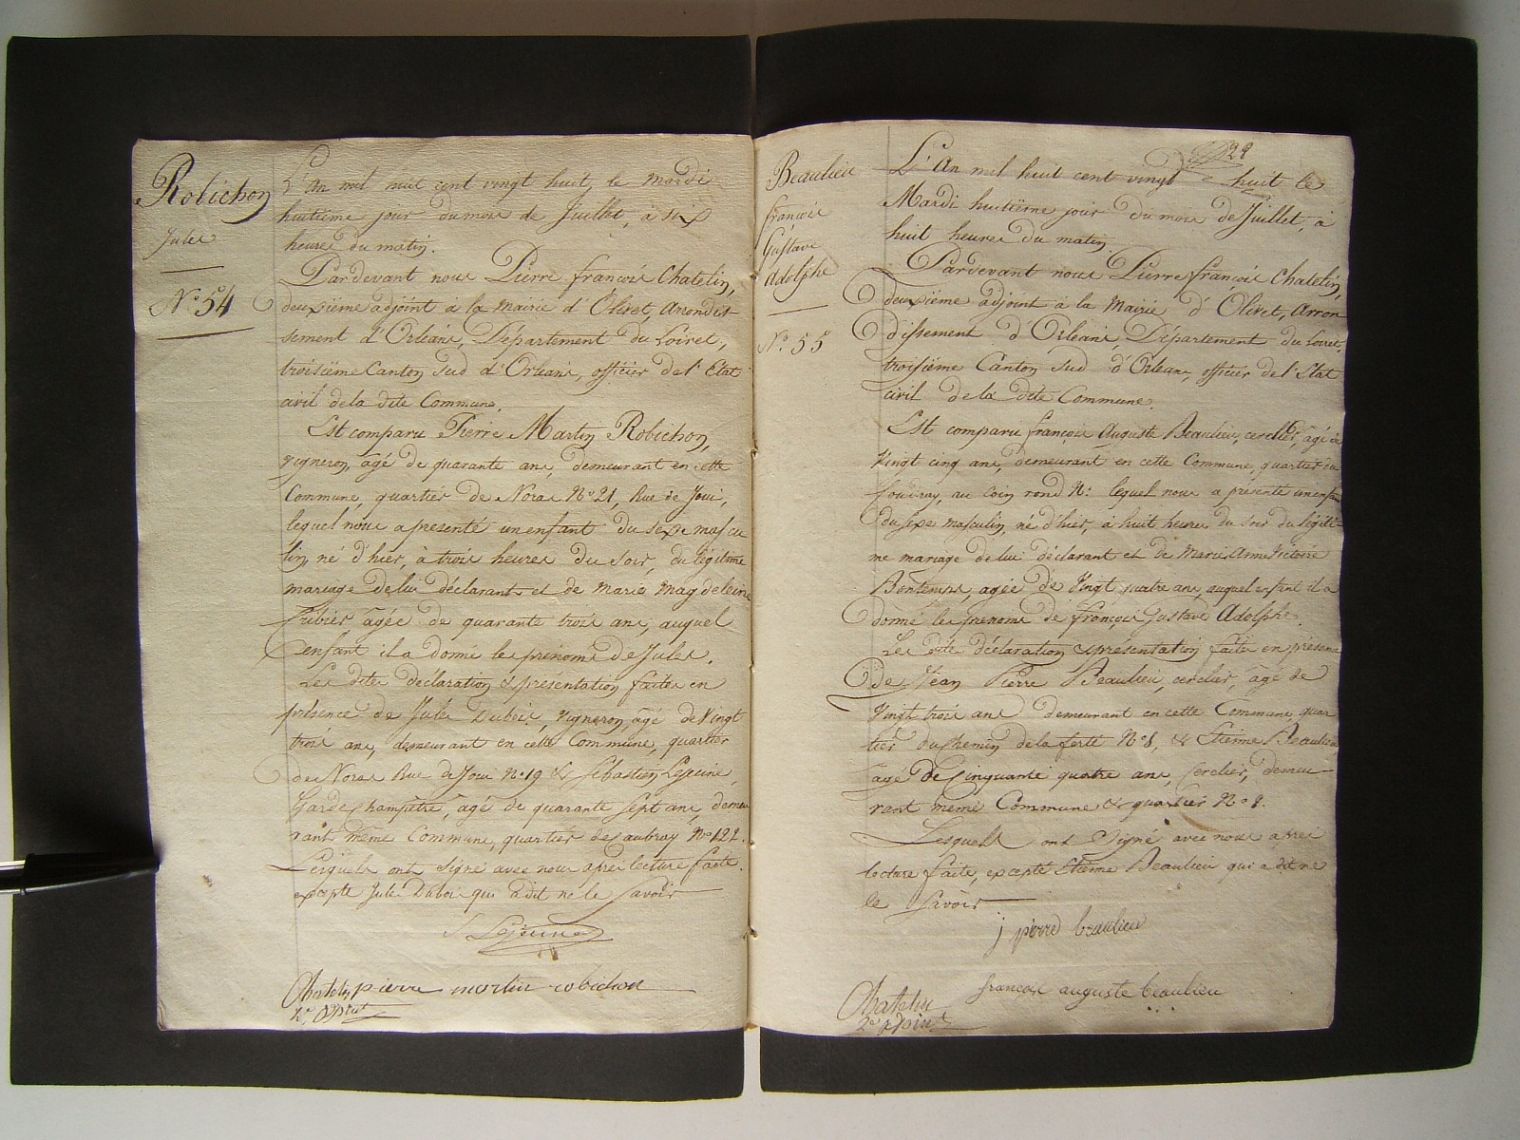 Robichon
Jules
N.o 54
L'An mil huit cent vingt huit, le mardi
huitième jour du mois de Juillet, à six
heures du matin.
Pardevant nous Pierre françois Chatelin,
deuxième adjoint à la Mairie d'Olivet, Arrondis-
sement d'Orléans, Département du Loiret,
troisième Canton Sud d'Orléans, officier de l'Etat
civil de la dite Commune.
Est comparu Pierre Martin Robichon,
vigneron, âgé de quarante ans, demeurant en cette
Commune, quartier de Noras N.o 21, Rue de Joui,
lequel nous a presenté un enfant du sexe mascu
lin, né d'hier, à trois heures du soir, du légitime
mariage de lui déclarant et de Marie Magdeleine
âgée de quarante trois ans, auquel
enfant il a donné les prénoms de Jules.
Les dites déclaration & présentation faites en
présence de Jules Dubois, vigneron, âgé de Vingt
trois ans, demeurant en cette Commune, quartier
de Noras Rue de Joui N.o 19 & Sébastien Lejeune,
Garde Champêtre, âgé de quarante sept ans, demeu
rant même Commune, quartier de Caubray N.o 122.
Lesquels ont signé avec nous après lecture faite.
excepté Jules Dubois qui a dit ne le savoir
S Lejeune
Chatelin pierre martin robichon
2.e adjoint
29
Beaulieu
françois
Gustave
Adolphe
N.o 55
L'An mil huit cent vingt huit le
Mardi huitième jour du mois de Juillet, à
huit heures du matin.
Pardevant nous Pierre françois Chatelin,
deuxième adjoint à la Mairie d'Olivet, Arron
dissement d'Orléans, Département du Loiret,
troisième Canton Sud d'Orléans, officier de l'Etat
civil de la dite Commune.
Est comparu françois Auguste Beaulieu, cerclier, âgé de
Vingt cinq ans, demeurant en cette Commune, quartier du
Coudray, au coin rond N.o lequel nous a présenté un enfant
du sexe masculin, né d'hier, à huit heures du soir du légiti-
me mariage de lui déclarant et de Marie Anne Victoire
Bontemps, agée de Vingt quatre ans, auquel enfant il a
donné les prénoms de françois Gustave Adolphe.
Les dite déclaration & présentation faite en présence
de Jean Pierre Beaulieu, cerclier, âgé de
Vingt trois ans demeurant en cette Commune, quar
tier du chemin de la ferté N.o 8, & Etienne Beaulieu
âgé de Cinquante quatre ans, Cerclier, demeu-
rant même Commune & quartier N.o 8.
Lesquels ont signé avec nous après
lecture faite, excepté Etienne Beaulieu qui a dit ne
le savoir
j pierre beaulieu
francois auguste beaulieu
Chatelin
2.e adjoint